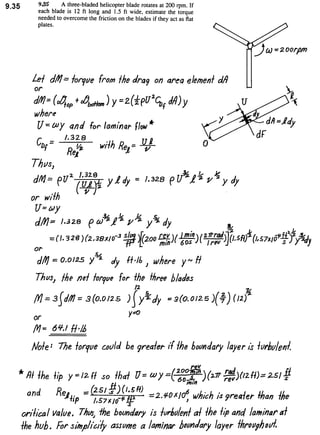 9.35
9.35 A three-bladed helicopter blade rotates at 200 rpm. If
each blade is 12 ft long and 1.5 ft wide, estimate the torque
needed to overcome the friction on the blades if they act as flat
plates.
ω = 200rpm
Let dM = torque from the drag on area element dA
or
dM = (𝒟top + 𝒟bottom) y = 2(½ρU² CDf dA) y
where
U = ωy and for laminar flow*
CDf = 1.328 / Reℓ^½ with Reℓ = Uℓ/ν
U
y
dA = ℓ dy
dF
0
Thus,
dM = ρU² 1.328 / (Uℓ/ν)^½ y ℓ dy = 1.328 ρ U^3/2 ℓ^½ ν^½ y dy
or with
U = ωy
dM = 1.328 ρ ω^3/2 ℓ^½ ν^½ y^5/2 dy
= (1.328)(2.38x10^-3 slug/ft³)[(200 rev/min)(1min/60s)(2π rad/1rev)]^3/2 (1.5ft)^½ (1.57x10^-4 ft²/s)^½ y^5/2 dy
or
dM = 0.0125 y^5/2 dy ft·lb , where y ~ ft
Thus, the net torque for the three blades
M = 3∫dM = 3(0.0125)∫y^5/2 dy = 3(0.0125)(2/7)(12)^7/2
12
y=0
or
M = 64.1 ft·lb
Note: The torque could be greater if the boundary layer is turbulent.
* At the tip y = 12 ft so that U = ωy = (200 rev/min / 60 s/min)(2π rad/rev)(12ft) = 251 ft/s
and Reℓtip = (251 ft/s)(1.5ft) / 1.57x10^-4 ft²/s = 2.40x10^6, which is greater than the
critical value. Thus, the boundary is turbulent at the tip and laminar at
the hub. For simplicity assume a laminar boundary layer throughout.